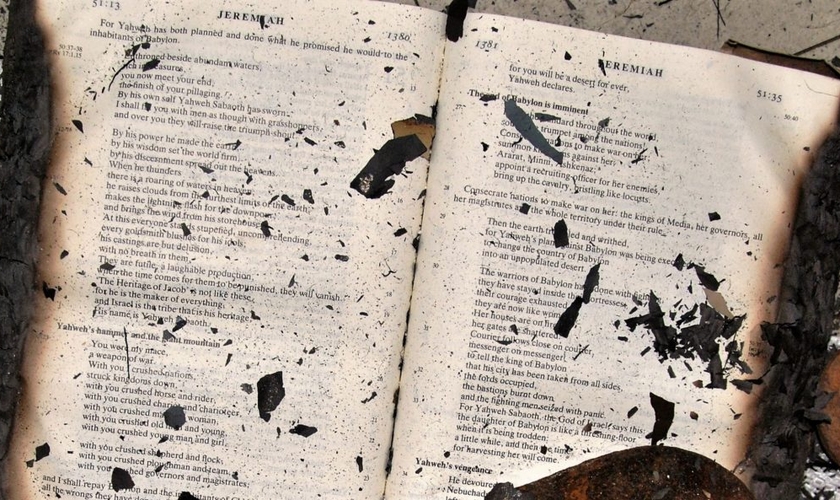 51:13
JEREMIAH
1380
For Yahweh has both planned and done what he promised he would to the
inhabitants of Babylon.
50:37-38
17:1,15
Enthroned beside abundant waters,
rich in treasures,
you now meet your end,
the finish of your pillaging.
By his own self Yahweh Sabaoth has sworn:
I shall fill you with men as though with grasshoppers,
and over you they will raise the triumph-shout.
By his power he made the earth,
by his wisdom set the world firm,
by his discernment spread out the heavens.
When he thunders
there is a roaring of waters in heaven;
he raises clouds from the furthest limits of the earth,
makes the lightning flash for the downpour,
and brings the wind from his storehouse.
At this everyone stands stupefied, uncomprehending,
every goldsmith blushes for his idols;
his castings are but delusion,
with no breath in them.
They are futile, a laughable production,
when the time comes for them to be punished, they will vanish.
The Heritage of Jacob is not like these,
for he is the maker of everything,
and Israel is the tribe that is his heritage;
His name is Yahweh Sabaoth.
Yahweh's hammer and the giant mountain
You were my mace,
a weapon of war.
With you I crushed nations,
struck kingdoms down,
with you crushed horse and rider,
with you crushed chariot and charioteer,
with you crushed man and woman,
with you crushed old man and young,
with you crushed young man and girl,
with you crushed shepherd and flock,
with you crushed ploughman and team,
with you crushed governors and magistrates;
and I shall repay Babylon and the inhabitants of
all the wrongs they have done
1381
JEREMIAH
51:35
for you will be a desert for ever,
Yahweh declares.
The end of Babylon is imminent
50:40
27
standard throughout the world,
sound the trumpet among the nations!
Consecrate nations to make war on her;
summon kingdoms against her:
Ararat, Minni, Ashkenaz;
appoint a recruiting officer for her enemies,
bring up the cavalry, bristling like locusts.
28
Consecrate nations to make war on her: the kings of Media, her governors, all
her magistrates and the whole territory under their rule.
29
Then the earth trembled and writhed,
for Yahweh's plan against Babylon was being executed:
to change the country of Babylon
into an unpopulated desert.
30
The warriors of Babylon have done with fighting,
they have stayed inside the fortresses;
their courage exhausted,
they are now like women.
Her houses are on fire,
her gates are shattered.
31
Courier follows close on courier,
messenger on messenger,
to tell the king of Babylon
that his city has been taken from all sides,
the fords occupied,
the bastions burnt down
and the fighting men seized with panic.
For Yahweh Sabaoth, the God of Israel, says this:
The daughter of Babylon is like a threshing-floor
when it is being trodden:
a little while, and then the time
for harvesting her will come.
Yahweh's vengeance
He devoured